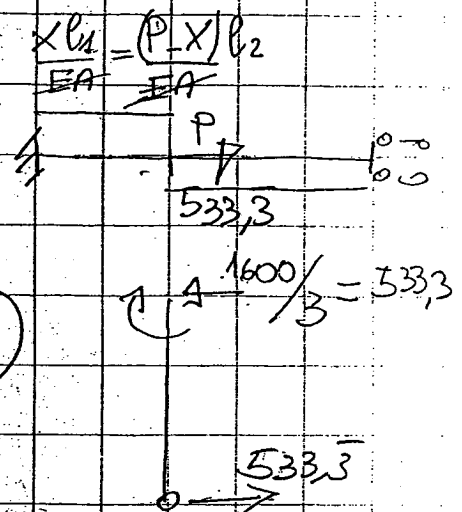 Xl₁/EA = (P-X)l₂/EA
P
533,3
1600/3 = 533,3
533,3̅